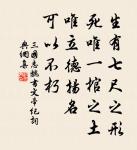 生有七尺之形
死唯一棺之土
唯立德揚名
可以不朽
三國志魏書文帝紀詞
典網集